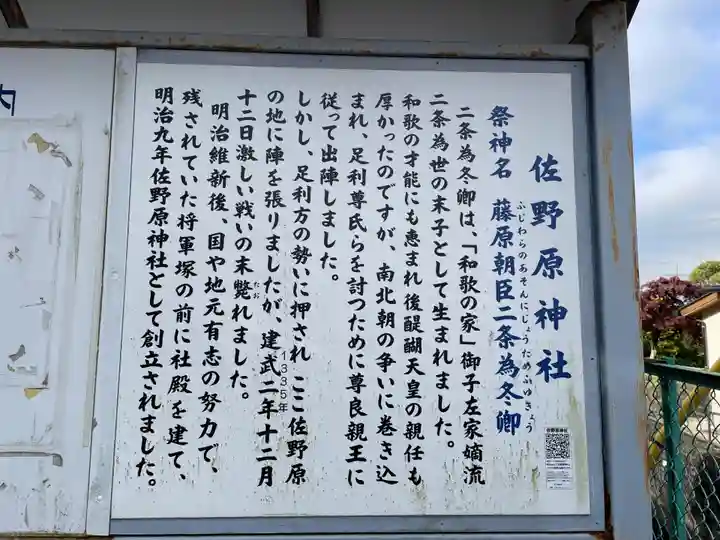 佐野原神社
祭神名 藤原朝臣二条為冬卿
ふじわらのあそんにじょうためふゆきょう
二条為冬卿は、「和歌の家」御子左家嫡流
二条為世の末子として生まれました。
和歌の才能にも恵まれ後醍醐天皇の親任も
厚かったのですが、南北朝の争いに巻き込
まれ、足利尊氏らを討つために尊良親王に
従って出陣しました。
しかし、足利方の勢いに押され ここ佐野原
の地に陣を張りましたが、建武二年十二月
1335年
十二日激しい戦いの末斃れました。
たお
明治維新後、国や地元有志の努力で、
残されていた将軍塚の前に社殿を建て、
明治九年佐野原神社として創立されました。
内